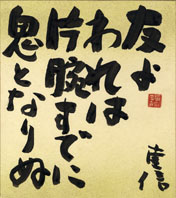 友よ
われは
片腕すでに
鬼となりぬ